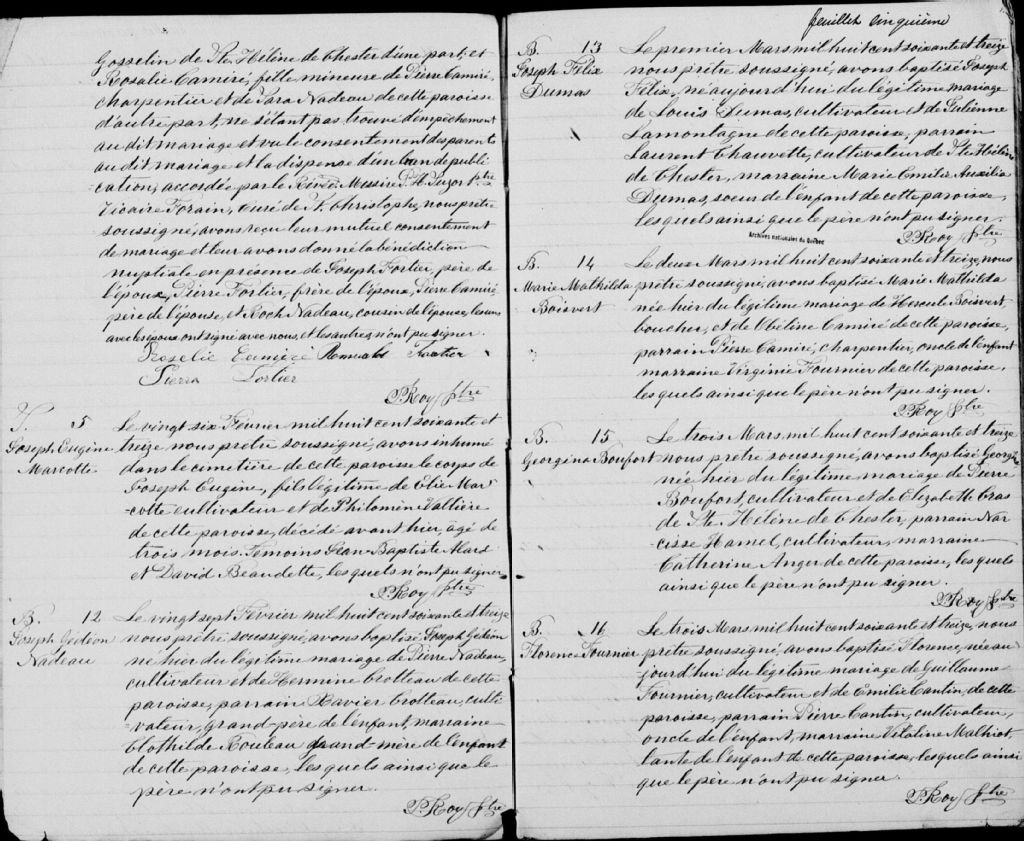 Gosselin de Ste. Hélène de Chester d'une part; et
Rosalie Camiré, fille mineure de Pierre Camiré,
charpentier et de Sara Nadeau de cette paroisse
d'autre part, ne s'étant pas trouvé d'empêchement
au dit mariage et vu le consentement des parents
au dit mariage et la dispense d'un ban de publi-
cation, accordée par le Révd. Messire P. H. Suzor ptre
Vicaire Forain, curé de St. Christophe, nous prêtre
soussigné, avons reçu leur mutuel consentement
de mariage et leur avons donné la bénédiction
nuptiale en présence de Joseph Fortier, père de
l'époux, Pierre Fortier, frère de l'époux, Pierre Camiré
père de l'épouse, et Roch Nadeau, cousin de l'épouse, les uns
avec les époux ont signé avec nous, et les autres n'ont pu signer.
Rosalie Camiré Romuald Fortier
Pierre Fortier
P. Roy ptre
S. 5
Joseph Eugène
Marcotte
Le vingt six Février mil huit cent soixante et
treize nous prêtre soussigné, avons inhumé
dans le cimetière de cette paroisse le corps de
Joseph Eugène, fils légitime de Elie Mar-
cotte cultivateur et de Philomène Vallière
de cette paroisse, décédé avant hier, âgé de
trois mois. Témoins Jean-Baptiste Mars
et David Beaudette, lesquels n'ont pu signer
P. Roy ptre
B. 12
Joseph Gédéon
Nadeau
Le vingt sept Février mil huit cent soixante et treize
nous prêtre soussigné, avons baptisé Joseph Gédéon
né hier du légitime mariage de Pierre Nadeau,
cultivateur et de Hermine Crotteau de cette
paroisse, parrain Xavier Crotteau, culti-
vateur, grand-père de l'enfant, marraine
Clothilde Rouleau grand-mère de l'enfant
de cette paroisse, lesquels ainsi que le
père n'ont pu signer.
P. Roy ptre
feuillet cinquième
B. 13
Joseph Félix
Dumas
Le premier Mars mil huit cent soixante et treize
nous prêtre soussigné, avons baptisé Joseph
Félix, né aujourd'hui du légitime mariage
de Louis Dumas, cultivateur et de Julienne
Lamontagne de cette paroisse, parrain
Laurent Chauvette, cultivateur de Ste. Hélène
de Chester, marraine Marie Emilie Auxilia
Dumas, soeur de l'enfant de cette paroisse,
lesquels ainsi que le père n'ont pu signer.
Archives nationales du Québec
P. Roy ptre
B. 14
Marie Mathilda
Boisvert
Le deux Mars mil huit cent soixante et treize, nous
prêtre soussigné, avons baptisé Marie Mathilda
née hier du légitime mariage de Hercule Boisvert
boucher, et de Obéline Camiré de cette paroisse,
parrain Pierre Camiré, charpentier, oncle de l'enfant
marraine Virginie Fournier de cette paroisse,
lesquels ainsi que le père n'ont pu signer.
P. Roy ptre
B. 15
Georgina Boufort
Le trois Mars mil huit cent soixante et treize
nous prêtre soussigné, avons baptisé Georgina
née hier du légitime mariage de Pierre
Boufort, cultivateur et de Elizabeth Gras
de Ste. Hélène de Chester, parrain Nar-
cisse Hamel, cultivateur, marraine
Catherine Anger de cette paroisse, lesquels
ainsi que le père n'ont pu signer.
P. Roy ptre
B. 16
Florence Fournier
Le trois Mars mil huit cent soixante et treize, nous
prêtre soussigné, avons baptisé Florence, née au-
jourd'hui du légitime mariage de Guillaume
Fournier, cultivateur et de Emilie Cantin, de cette
paroisse, parrain Pierre Cantin, cultivateur,
oncle de l'enfant, marraine Vitaline Malhiot,
tante de l'enfant de cette paroisse, lesquels ainsi
que le père n'ont pu signer.
P. Roy ptre